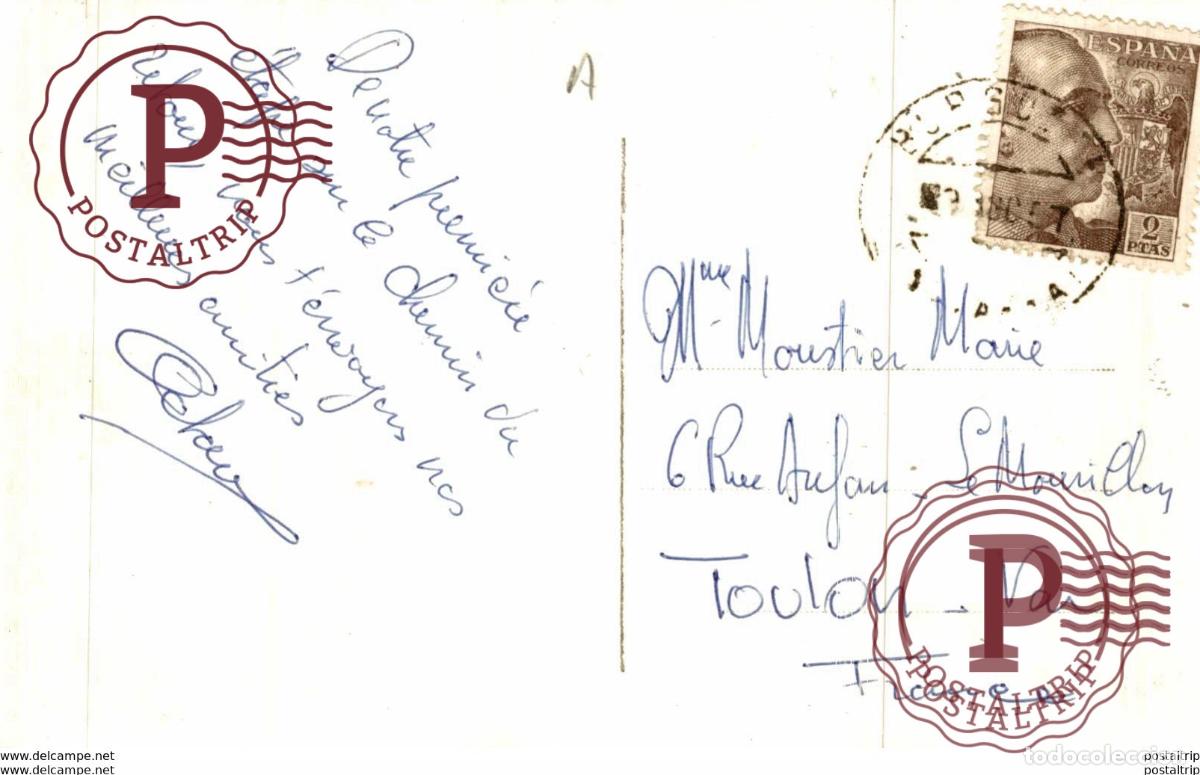 De notre première
étape sur le chemin du
retour vous envoyons nos
meilleures amitiés
A
ESPAÑA
CORREOS
2
PTAS
Mme Moustier Marie
6 Rue Anfan - Le Mourillon
Toulon - Var
France
P
POSTALTRIP
P
POSTALTRIP
POSTALTRIP
todocoleccion
www.delcampe.net
www.delcampe.net
postaltrip
postaltrip